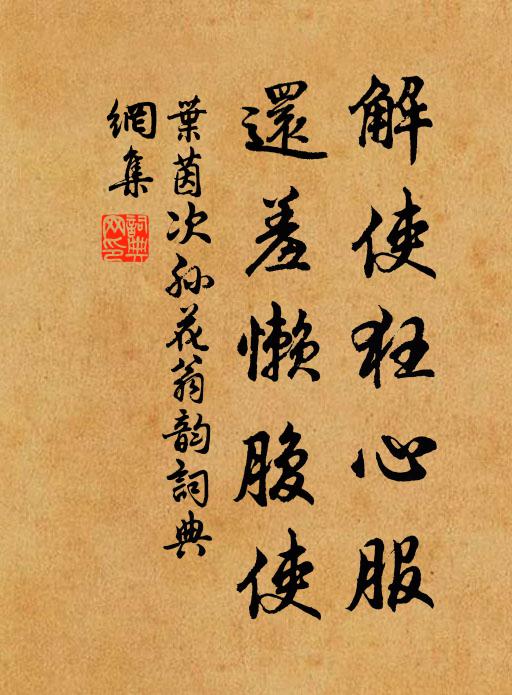 解使狂心服
還羞懶腹使
葉茵次孙花翁韵詞典
網集
詞典网印